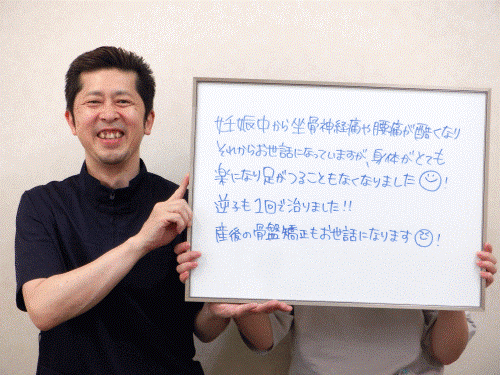 妊娠中から坐骨神経痛や腰痛が酷くなり
それからお世話になっていますが、身体がとても
楽になり足がつることもなくなりました!
逆子も1回で治りました!!
産後の骨盤矯正もお世話になります!